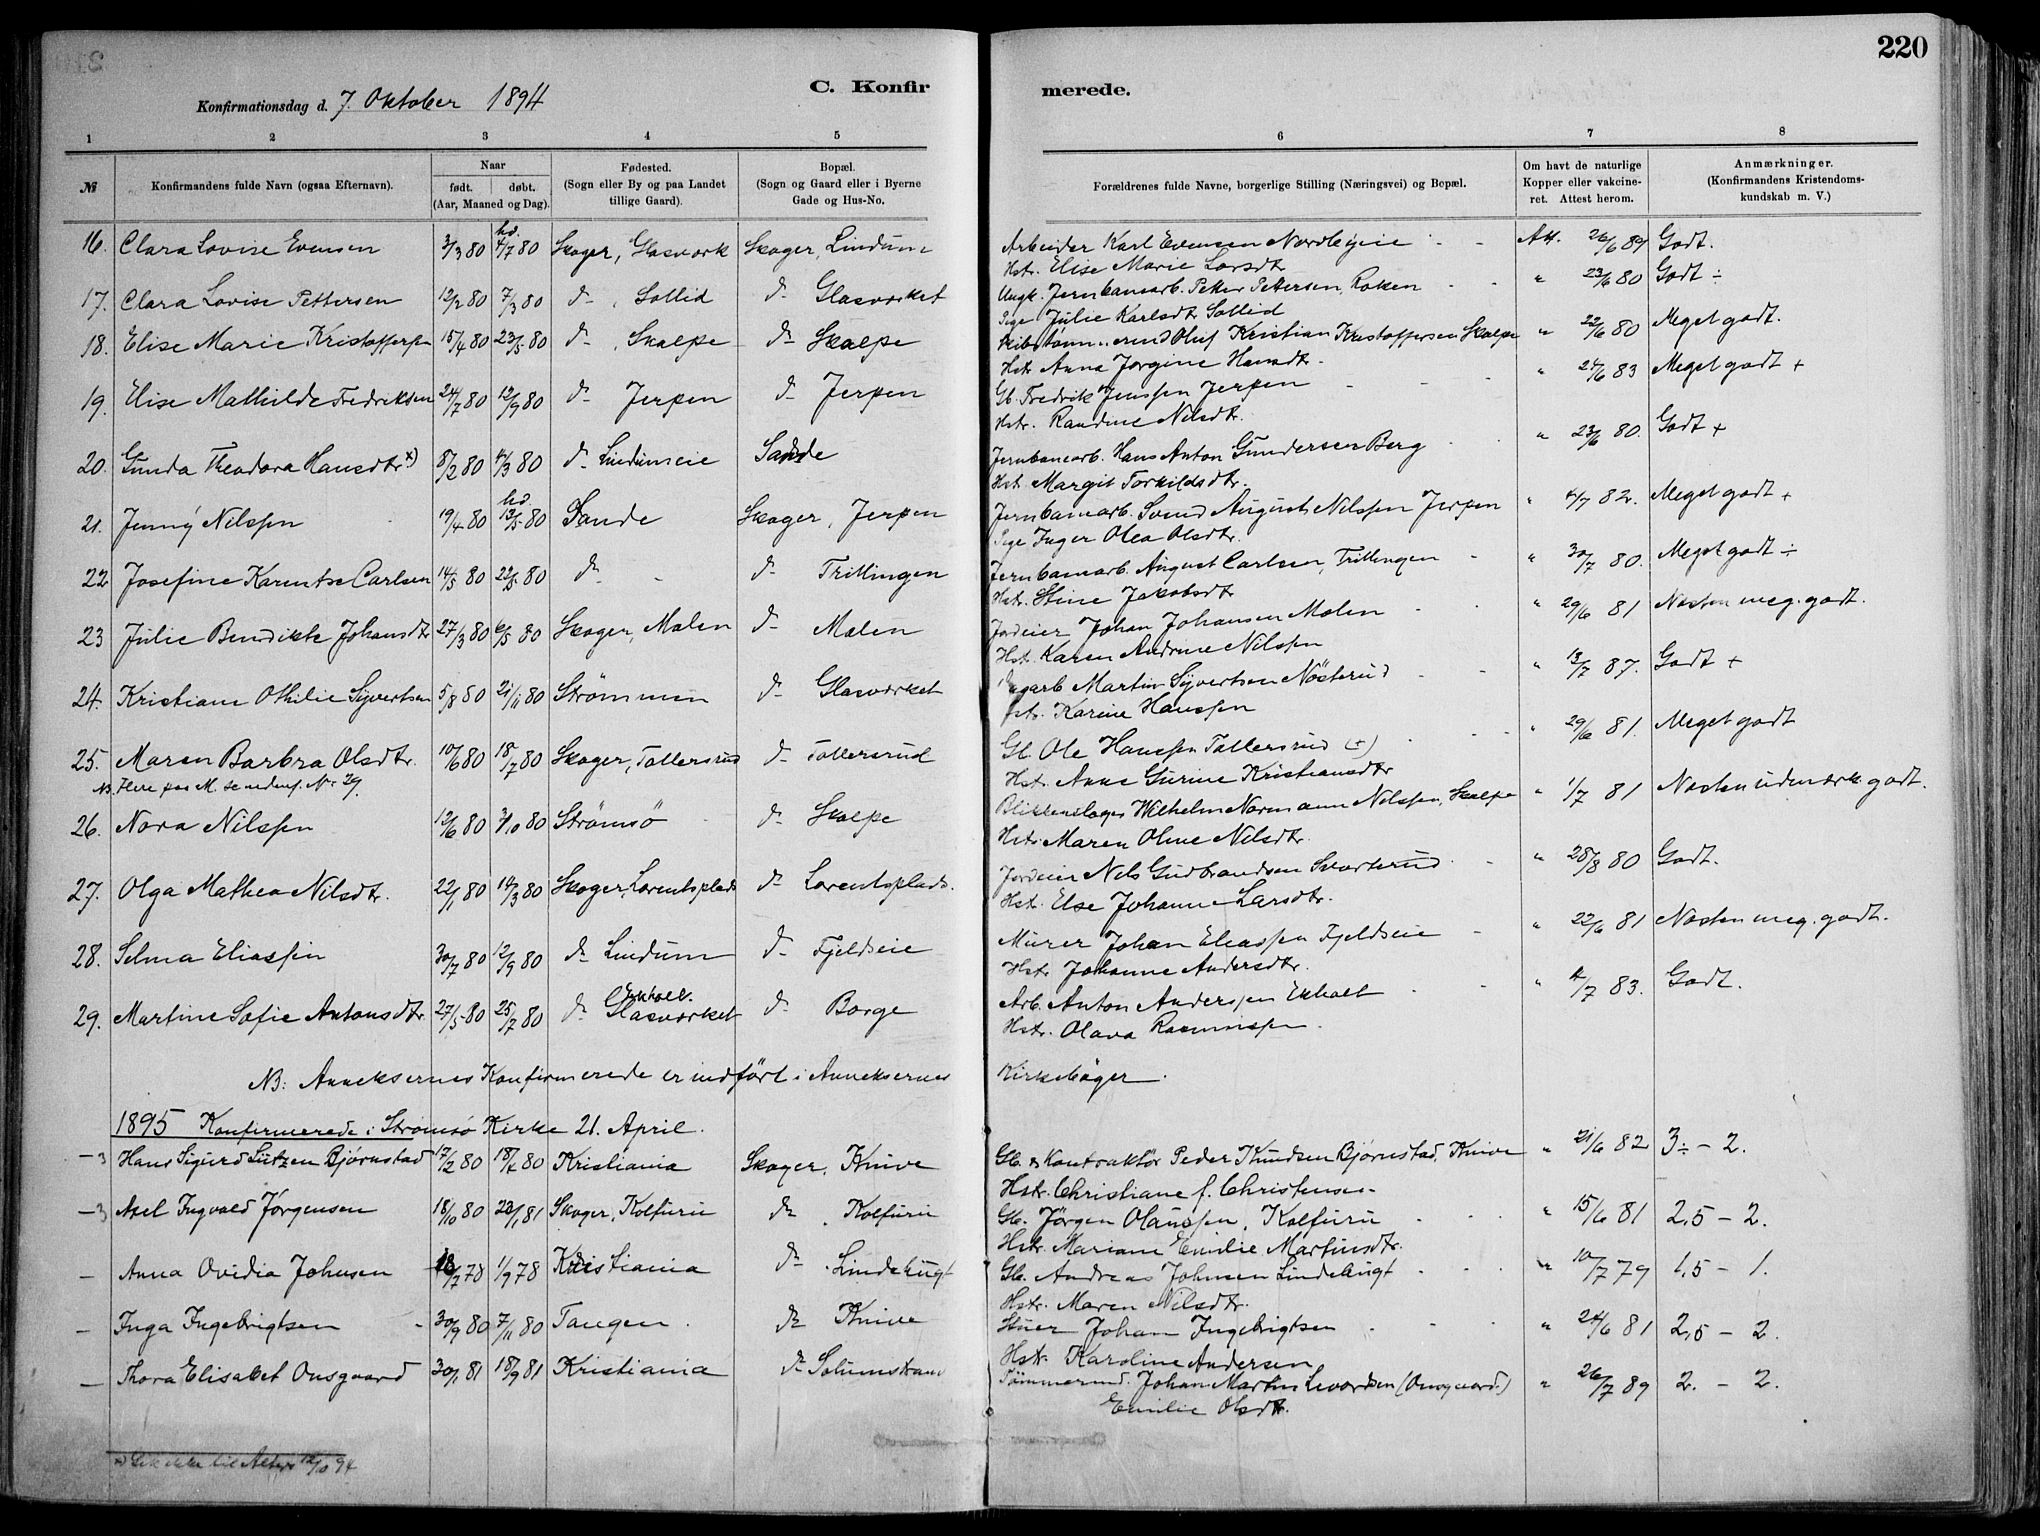 220
Konfirmationsdag d. 7. Oktober 1894
C. Konfirmerede.
1 2 3 4 5 6 7 8
№
Konfirmandens fulde Navn (ogsaa Efternavn).
Naar
født. døbt.
(Aar, Maaned og Dag).
Fødested.
(Sogn eller By og paa Landet
tillige Gaard).
Bopæl.
(Sogn og Gaard eller i Byerne
Gade og Hus-No.
Forældrenes fulde Navne, borgerlige Stilling (Næringsvei) og Bopæl.
Om havt de naturlige
Kopper eller vakcine-
ret. Attest herom.
Anmærkninger.
(Konfirmandens Kristendoms-
kundskab m. V.)
16. Clara Lovise Evensen 3/3 80 hd. 4/7 80 Skoger, Glasverk Skoger, Lindum Arbeider Karl Evensen Nordbyeie Att. 26/6 89 Godt.
Hst. Elise Marie Larsdt
17. Clara Lovise Pettersen 12/2 80 7/3 80 do, Sollid do Glasverket Ungk. Jernbanearb. Petter Pettersen, Røken " 23/6 80 Godt ÷
Pige Julie Karlsdt. Sollid
18. Elise Marie Kristoffersen 15/4 80 23/5 80 do, Skalpe do Skalpe Oluf Kristian Kristoffersen Skalpe " 22/6 80 Meget godt.
Hst. Anna Jorgine Hansdt.
19. Elise Mathilde Fredriksen 24/7 80 12/9 80 do Jerpen do Jerpen Gb. Fredrik Jenssen Jerpen " 27/6 83 Meget godt +
Hstr. Randine Nilsdtr.
20. Gunda Theodora Hansdtr x) 8/2 80 4/3 80 do Lindumeie Sande Jernbanearb. Hans Anton Gundersen Berg " 23/6 80. Godt +
Hst. Margit Torkildsdtr.
21. Jenny Nilssen 19/4 80 hd. 13/5 80 Sande Skoger, Jerpen Jernbanearb. Svend August Nilssen Jerpen " 4/7 82. Meget godt +
Pige Inger Olea Olsdtr.
22 Josefine Karentse Carlsen 14/5 80 22/5 80 do do Trillingen Jernbanearb. August Carlsen, Trillingen " 30/7 80. Meget godt ÷
Hst. Stine Jakobsdt
23 Julie Bendikte Johansdtr 27/3 80 6/5 80 Skoger, Malen do Malen Jordeier Johan Johansen Malen " 29/6 81 Næsten meg. godt.
Hst. Karen Andrine Nilssen
24. Kristiane Othilie Syvertsen 5/8 80 21/11 80 Strømmen do Glasverket Dagarb Martin Syvertsen Nøsterud " 13/7 87. Godt +
Hst. Karine Hanssen
25. Maren Barbra Olsdtr. 10/6 80 18/7 80 Skoger, Tollersrud do Tollersrud Gb. Ole Hanssen Tollersrud (+) " 29/6 81. Meget godt
NB. Flere paa M. se nedenf. Nr 29.
Hst. Anne Gurine Kristiansdtr
26. Nora Nilssen 12/6 80 3/10 80 Strømsø do Skalpe Blikkenslager Wilhelm Normann Nilssen, Skalpe " 1/7 81 Næsten udmærk. godt.
Hst. Maren Oline Nilsdtr.
27. Olga Mathea Nilsdtr. 22/1 80 14/3 80 Skoger, Lorentsplads do Lorentsplads. Jordeier Nels Gudbrandsen Svarterud " 28/8 80 Godt.
Hst. Else Johanne Larsdtr.
28. Selma Eliassen 30/7 80 12/9 80 do Lindum do Fjeldseie Murer Johan Eliassen Fjeldseie " 22/6 81 Næsten meg. godt.
Hst. Johanne Andersdtr.
29. Martine Sofie Antonsdtr. 27/5 80 25/7 80 do Ekholt. Glasverket do Borge Arb. Anton Anderssen Ekholt " 4/7 83. Godt.
Hst. Olava Rasmussen.
NB: Anneksernes Konfirmerede er indført i Anneksernes Kirkebøger.
1895 Konfirmerede i Strømsø Kirke 21. April.
-3 Hans Sigurd Lützen Bjørnstad 17/2 80 18/4 80 Kristiania Skoger, Knive Gb. & Kontraktør Peder Knudsen Bjørnstad, Knive " 21/6 82 3÷ - 2.
Hst. Christiane f. Christensen
-3 Axel Ingvald Jørgensen 18/10 80 23/1 81 Skoger, Kolfuru do, Kolfuru Gb. Jørgen Olaussen, Kolfuru " 15/6 81 2,5 - 2.
Hst. Mariane Emilie Martinsdtr.
- Anna Ovidia Johnsen 18/7 78 1/9 78 Kristiania do Lindebugt Gb. Andreas Johnsen Lindebugt " 10/7 79 1,5 - 1.
Hst. Maren Nilsdtr.
- Inga Ingebrigtsen 30/9 80 7/11 80 Tangen. do Knive Stuer Johan Ingebrigtsen " 24/6 81 2,5 - 2.
Hst. Karoline Andersen
- Thora Elisabet Onsgaard 30/1 81 18/9 81 Kristiania do Solumstrand Tømmermd. Johan Martin Livordsen (Onsgaard.) " 26/7 89 2. - 2.
Emilie Olsdtr.
x) Gik ikke til Alters 12/10 94